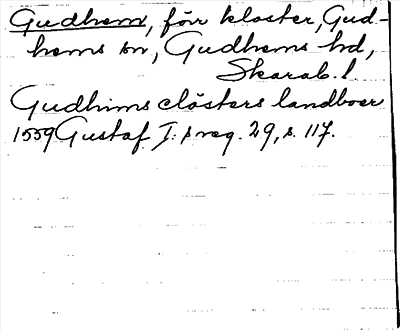 Gudhem, förr kloster, Gud-
hems sn, Gudhems hd,
Skarab. l.
Gudhims clösters landboer
1559 Gustaf I:s reg. 29, s. 117.